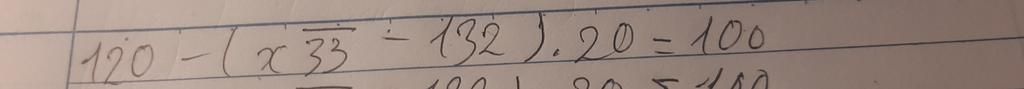 120 - ( x \overline{33} - 132 ) . 20 = 100